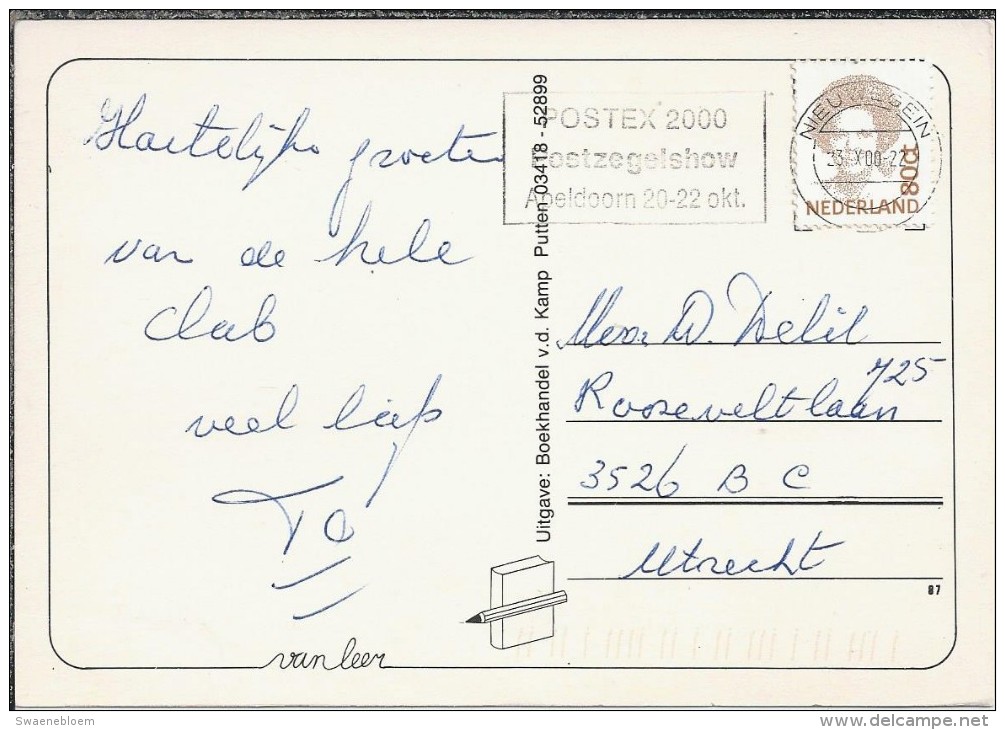 Hartelijke groeten
van de hele
club
veel liefs
To
van leer
Uitgave: Boekhandel v.d. Kamp Putten 03418 - 52899
POSTEX 2000
Postzegelshow
Apeldoorn 20-22 okt.
NIEUWEGEIN
23.X00-22
80ct
NEDERLAND
D. Delil
725
Rooseveltlaan
3526 B C
Utrecht
87
Swaenebloem
www.delcampe.net